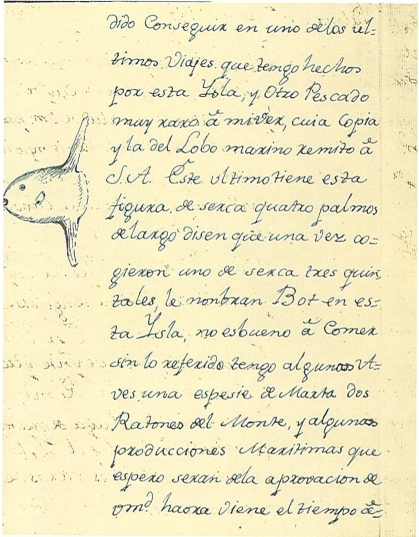 dido Conseguir en uno delos úl-
timos Viajes que tengo hechos
por esta Ysla, y Otro Pescado
muy raro â mi vér, cuia Copia
y la del Lobo marino remito â
S.A. Este ultimo tiene esta
figura de serca quatro palmos
de largo disen que una vez co-
gieron uno de serca tres quin
tales, le nonbran Bot en es-
ta Ysla, no es bueno â Comer
sin lo referido tengo algunas A-
ves, una espesie de Marta dos
Ratones del Monte, y algunas
producciones Maritimas que
espero seran dela aprovacion de
vmd. haora viene el tiempo â-